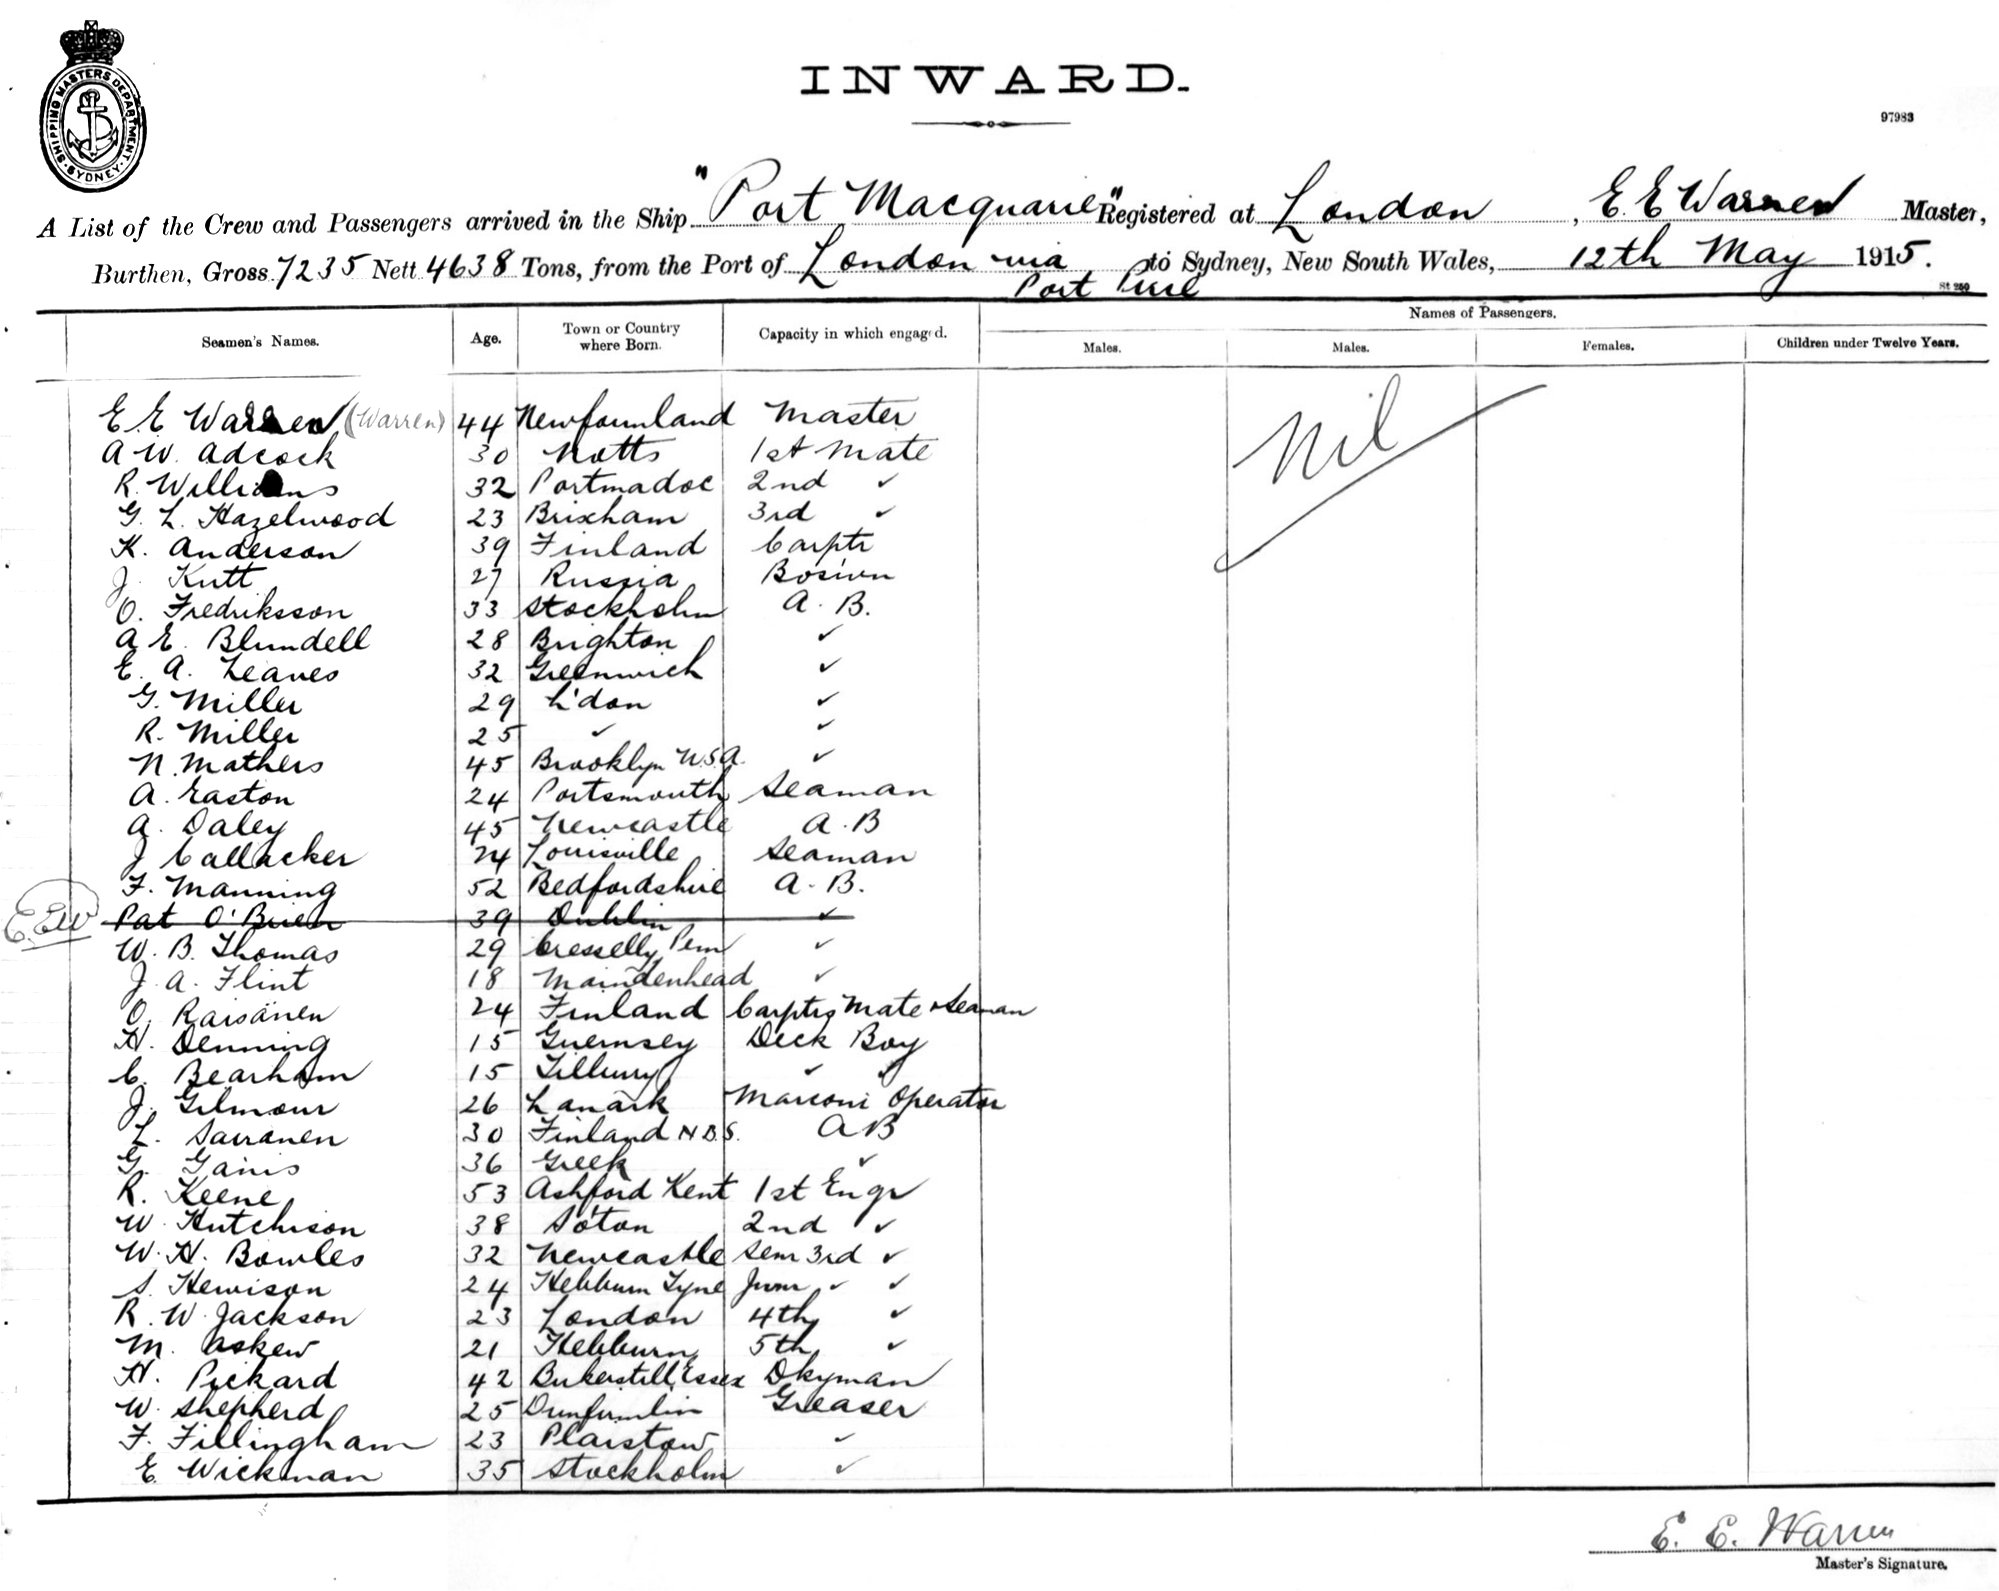 SHIPPING MASTERS DEPARTMENT
SYDNEY
INWARD.
97983
A List of the Crew and Passengers arrived in the Ship "Port Macquarie" Registered at London, E. E Warren Master,
Burthen, Gross 7235 Nett 4638 Tons, from the Port of London via to Sydney, New South Wales, 12th May 1915.
Port Pirie
St 250
Names of Passengers.
Seamen's Names. Age. Town or Country where Born. Capacity in which engaged. Males. Males. Females. Children under Twelve Years.
Nil
E. E Warren (Warren) 44 Newfounland Master
A. W. Adcock 30 Notts 1st Mate
R. Williams 32 Portmadoc 2nd ✓
G. L. Hazelwood 23 Brixham 3rd ✓
K. Anderson 39 Finland Carptr
J. Kutt 27 Russia Bosiwn
O. Fredriksson 33 Stockholm A. B.
A E. Blundell 28 Brighton ✓
E. A. Leaves 32 Greenwich ✓
G. Miller 29 L'don ✓
R. Miller 25 ✓ ✓
N. Mathers 45 Brooklyn U.S.A. ✓
A. Easton 24 Portsmouth Seaman
A. Daley 45 Newcastle A. B
J Callacker 24 Louisville Seaman
F. Manning 52 Bedfordshire A. B.
E.EW Pat O'Brien 39 Dublin ✓
W. B. Thomas 29 Cresselly Pem ✓
J. A. Flint 18 Maindenhead ✓
O. Raisänen 24 Finland Carptrs Mate & Seaman
H. Denning 15 Guernsey Deck Boy
C. Bearham 15 Tilbury ✓ ✓
J. Gilmour 26 Lanark Marconi Operator
L. Saranen 30 Finland N.B.S. A B
G. Ganis 36 Greek ✓
R. Keene 53 Ashford Kent 1st Engr
W. Hutchison 38 So'ton 2nd ✓
W. H. Bowles 32 Newcastle Senr 3rd ✓
S. Hewison 24 Hebburn Tyne Junr ✓ ✓
R. W. Jackson 23 London 4th ✓
M. Askew 21 Hebburn 5th ✓
H. Pickard 42 Essex Dkyman
W. Shepherd 25 Dunfermlin Greaser
F. Fillingham 23 Plaistow ✓
E. Wickman 35 Stockholm ✓
E. E. Warren
Master's Signature.